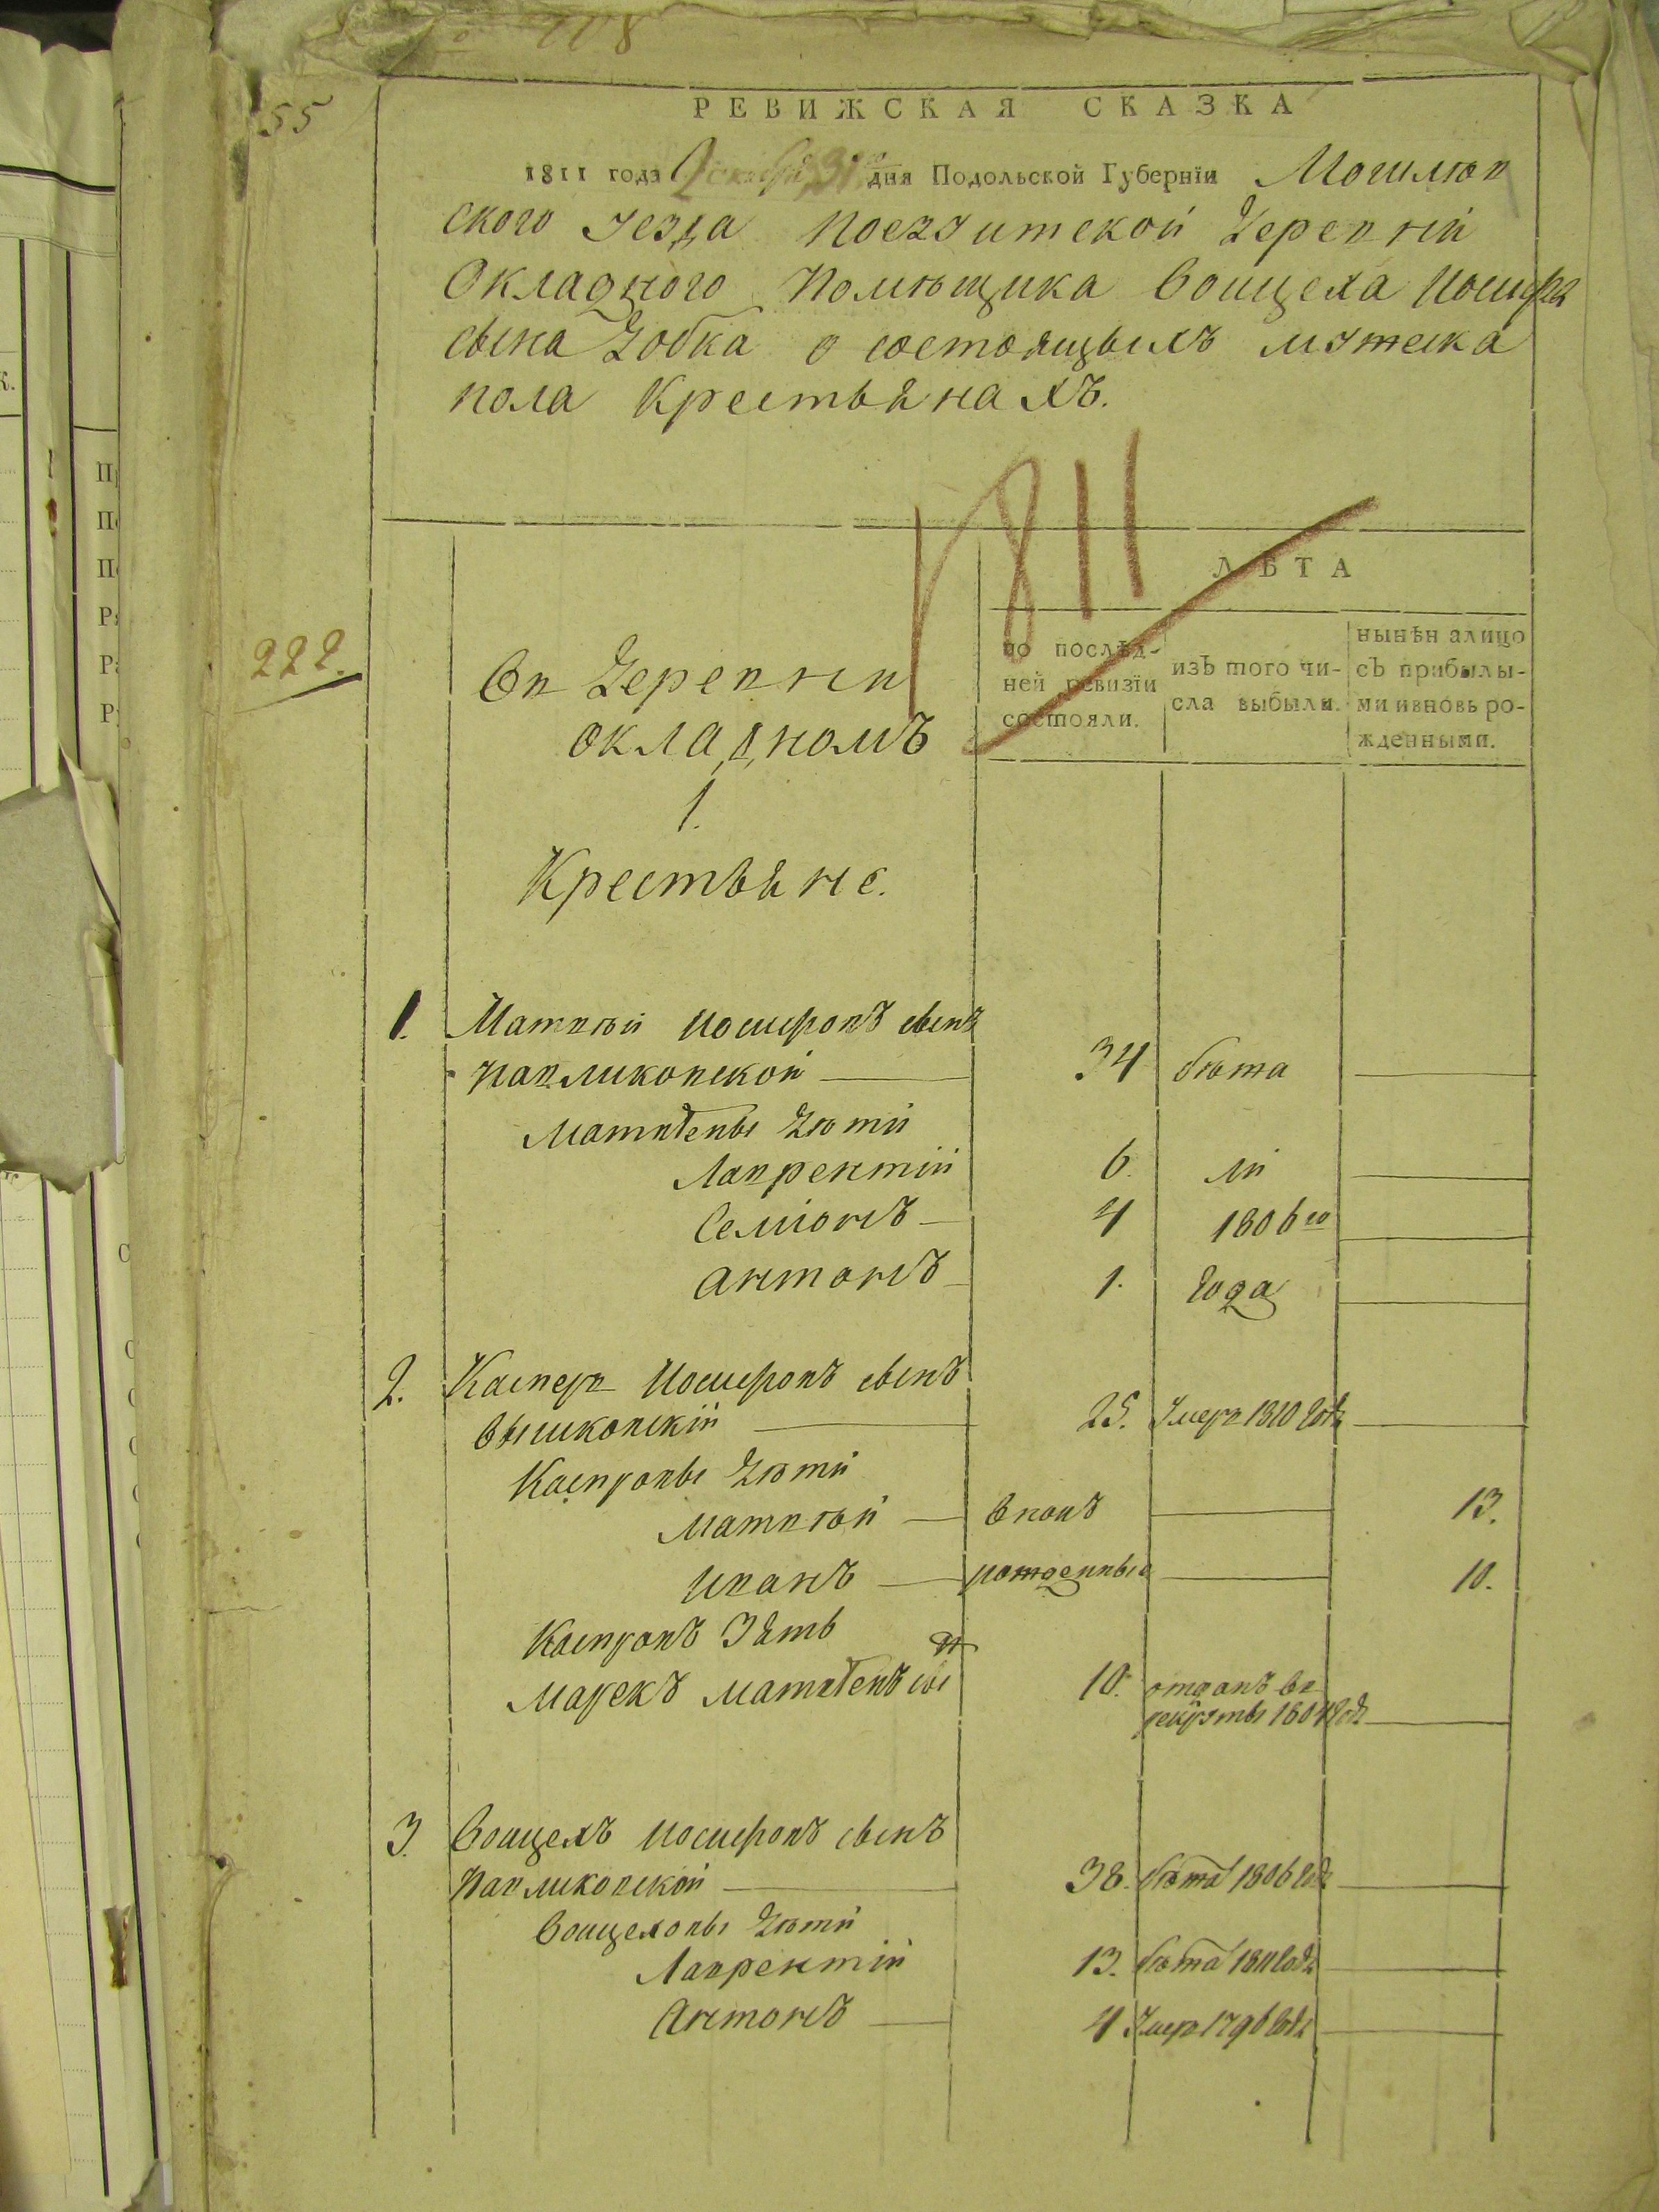 55
РЕВИЖСКАЯ СКАЗКА
1811 года дня Подольской Губернїи Могилюв
ского уезда поезуитской Деревни
Окладного Помѣщика Воицеха Иосифа
сына Добка о состоящыхъ мужеска
пола Крестьянахъ.
1811
222.
Вв Деревни
окладномъ
1.
Крестьяне.
ЛѢТА
по послѣд-
ней ревизїи
состояли.
изЪ того чи-
сла выбыли.
нынѣн алицо
сЪ прибылы-
ми ивновь ро-
жденными.
1. Матвѣй Иосифовъ сынъ
Павликовской 34 бѣта
Матвѣевы Дѣти
Лаврентій 6. ли
Семіонъ 4 1806го
антонъ 1. Года
2. Касперъ Иосифовъ сынъ
Вышковскій 25. Умеръ 1810 Года
Каспровы Дѣти
Матвѣй вновъ 13.
Иванъ рожденные 10.
Каспровъ Зять
Марекъ Матвѣевъ сын 10. отданъ вв
рекруты 1804 Года
3. Воицехъ Иосифовъ сынъ
Павликовской 38. бѣта 1806 Года
Воицеховы Дѣти
Лаврентій 13. бѣта 1811 Года
Антонъ 4 Умеръ 1796 Года